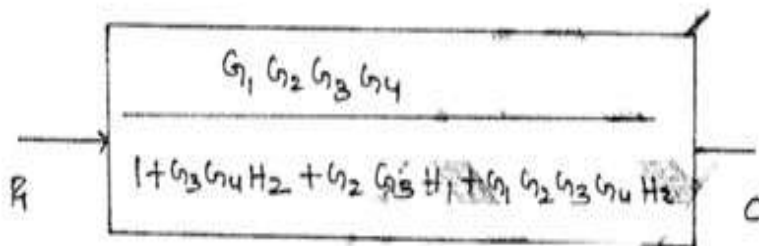 G₁ G₂ G₃ G₄
1+G₃G₄H₂ + G₂ G₃ H₁ + G₁ G₂ G₃ G₄ H₂
R C